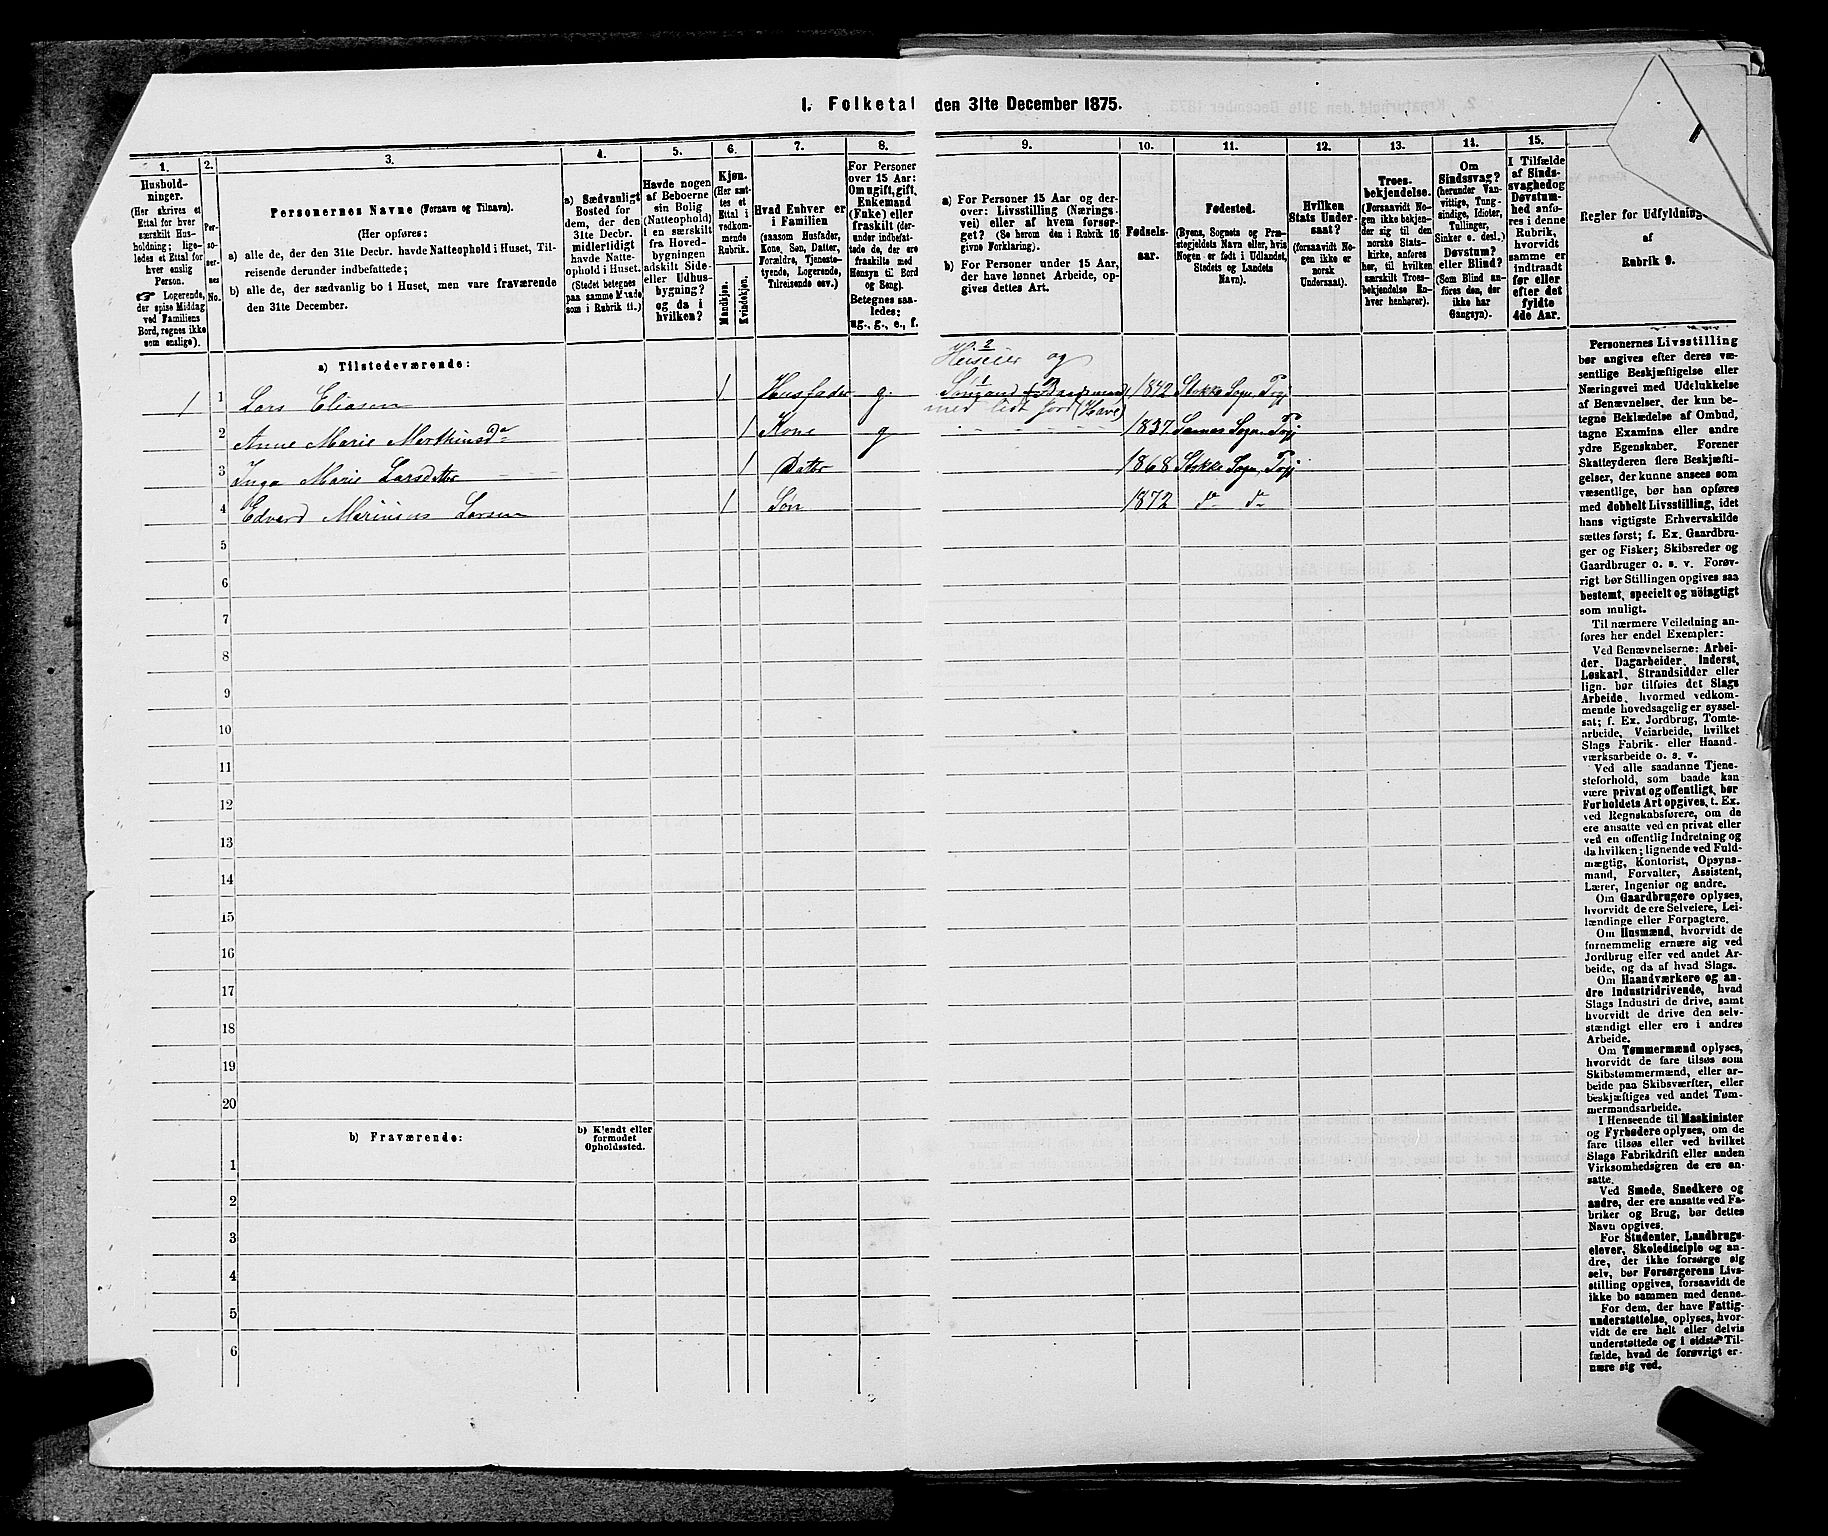 1. Folketal den 31te December 1875.
1.
2.
3.
4.
5.
6.
7.
8.
9.
10.
11.
12.
13.
14.
15.
Hushold-
ninger.
(Her skrives et
Ettal for hver
særskilt Hus-
holdning; lige-
ledes et Ettal for
hver enslig
Person.
☞ Logerende,
der spise Middag
ved Familiens
Bord, regnes ikke
som enslige).
Per-
so-
ner-
nes
No.
Personernes Navne (Fornavn og Tilnavn).
(Her opføres:
a) alle de, der den 31te Decbr. havde Natteophold i Huset, Til-
reisende derunder indbefattede;
b) alle de, der sædvanlig bo i Huset, men vare fraværende
den 31te December.
a) Sædvanligt
Bosted for
dem, der den
31te Decbr.
midlertidigt
havde Natte-
ophold i Huset.
(Stedet betegnes
paa samme Maade
som i Rubrik 11.)
Havde nogen
af Beboerne
sin Bolig
(Natteophold)
i en særskilt
fra Hoved-
bygningen
adskilt Side-
eller Udhus-
bygning?
og da i
hvilken?
Kjøn.
(Her sæt-
tes et
Ettal i
vedkom-
mende
Rubrik.
Mandkjøn.
Kvindekjøn.
Hvad Enhver er
i Familien
(saasom Husfader,
Kone, Søn, Datter,
Forældre, Tjeneste-
tyende, Logerende,
Tilreisende osv.)
For Personer
over 15 Aar:
Om ugift, gift,
Enkemand
(Enke) eller
fraskilt (der-
under indbefat-
tede de, der ere
fraskilte med
Hensyn til Bord
og Seng).
Betegnes saa-
ledes:
ug., g., e., f.
a) For Personer 15 Aar og der-
over: Livsstilling (Nærings-
vei) eller af hvem forsør-
get? (Se herom den i Rubrik 16
givne Forklaring).
b) For Personer under 15 Aar,
der have lønnet Arbeide, op-
gives dettes Art.
Fødsels-
aar.
Fødested.
(Byens, Sognets og Præ-
stegjeldets Navn eller, hvis
Nogen er født i Udlandet,
Stedets og Landets
Navn).
Hvilken
Stats Under-
saat?
(forsaavidt No-
gen ikke er
norsk
Undersaat).
Troes-
bekjendelse.
(Forsaavidt No-
gen ikke bekjen-
der sig til den
norske Stats-
kirke, anføres
her, til hvilken
særskilt Troes-
bekjendelse En-
hver henhører).
Om
Sindssvag?
(herunder Van-
vittige, Tung-
sindige, Idioter,
Tullinger,
Sinker o. desl.)
Døvstum?
eller Blind?
(Som Blind an-
føres den, der
ikke har
Gangsyn).
I Tilfælde
af Sinds-
svaghed og
Døvstum-
hed anfø-
res i denne
Rubrik,
hvorvidt
samme er
indtraadt
før eller
efter det
fyldte
4de Aar.
Regler for Udfyldning
af
Rubrik 9.
a) Tilstedeværende:
Huseier og 2
1 1 Lars Eliasen 1 Husfader g. 1842 Stokke Sogn,
med lidt Jord (Have)
2 Anne Marie 1 Kone g 1837 Sogn,
3 Inga Marie Larsdatter 1 Datter 1868 Stokke Sogn,
4 Edvard Marinius Larsen 1 Søn 1872 do do
5
6
7
8
9
10
11
12
13
14
15
16
17
18
19
20
b) Fraværende:
b) Kjendt eller
formodet
Opholdssted.
1
2
3
4
5
6
Personernes Livsstilling
bør angives efter deres væ-
sentlige Beskjæftigelse eller
Næringsvei med Udelukkelse
af Benævnelser, der kun be-
tegne Beklædelse af Ombud,
tagne Examina eller andre
ydre Egenskaber. Forener
Skatteyderen flere Beskjæfti-
gelser, der kunne ansees som
væsentlige, bør han opføres
med dobbelt Livsstilling, idet
hans vigtigste Erhvervskilde
sættes først; f. Ex. Gaardbru-
ger og Fisker; Skibsreder og
Gaardbruger o. s. v. Forøv-
rigt bør Stillingen opgives saa
bestemt, specielt og nöiagtigt
som muligt.
Til nærmere Veiledning an-
føres her endel Exempler:
Ved Benævnelserne: Arbei-
der, Dagarbeider, Inderst,
Løskarl, Strandsidder eller
lign. bør tilføies det Slags
Arbeide, hvormed vedkom-
mende hovedsagelig er syssel-
sat; f. Ex. Jordbrug, Tomte-
arbeide, Veiarbeide, hvilket
Slags Fabrik- eller Haand-
værksarbeide o. s. v.
Ved alle saadanne Tjene-
steforhold, som baade kan
være privat og offentligt, bør
Forholdets Art opgives, t. Ex.
ved Regnskabsførere, om de
ere ansatte ved en privat eller
ved en offentlig Indretning og
da hvilken; lignende ved Fuld-
mægtig, Kontorist, Opsyns-
mand, Forvalter, Assistent,
Lærer, Ingeniør og andre.
Om Gaardbrugere oplyses,
hvorvidt de ere Selveiere, Lei-
lændinge eller Forpagtere.
Om Husmænd, hvorvidt de
fornemmelig ernære sig ved
Jordbrug eller ved andet Ar-
beide, og da af hvad Slags.
Om Haandværkere og an-
dre Industridrivende, hvad
Slags Industri de drive, samt
hvorvidt de drive den selv-
stændigt eller ere i andres
Arbeide.
Om Tømmermænd oplyses,
hvorvidt de fare tilsøs som
Skibstømmermænd, eller ar-
beide paa Skibsværfter, eller
beskjæftiges ved andet Tøm-
mermandsarbeide.
I Henseende til Maskinister
og Fyrbødere oplyses, om de
fare tilsøs eller ved hvilket
Slags Fabrikdrift eller anden
Virksomhedsgren de ere an-
satte.
Ved Smede, Snedkere og
andre, der ere ansatte ved Fa-
briker og Brug, bør dettes
Navn opgives.
For Studenter, Landbrugs-
elever, Skoledisciple og an-
dre, der ikke forsørge sig
selv, bør Forsørgerens Livs-
stilling opgives, forsaavidt de
ikke bo sammen med denne.
For dem, der have Fattig-
understøttelse, oplyses, hvor-
vidt de ere helt eller delvis
understøttede og i sidste Til-
fælde, hvad de forøvrigt er-
nære sig ved.